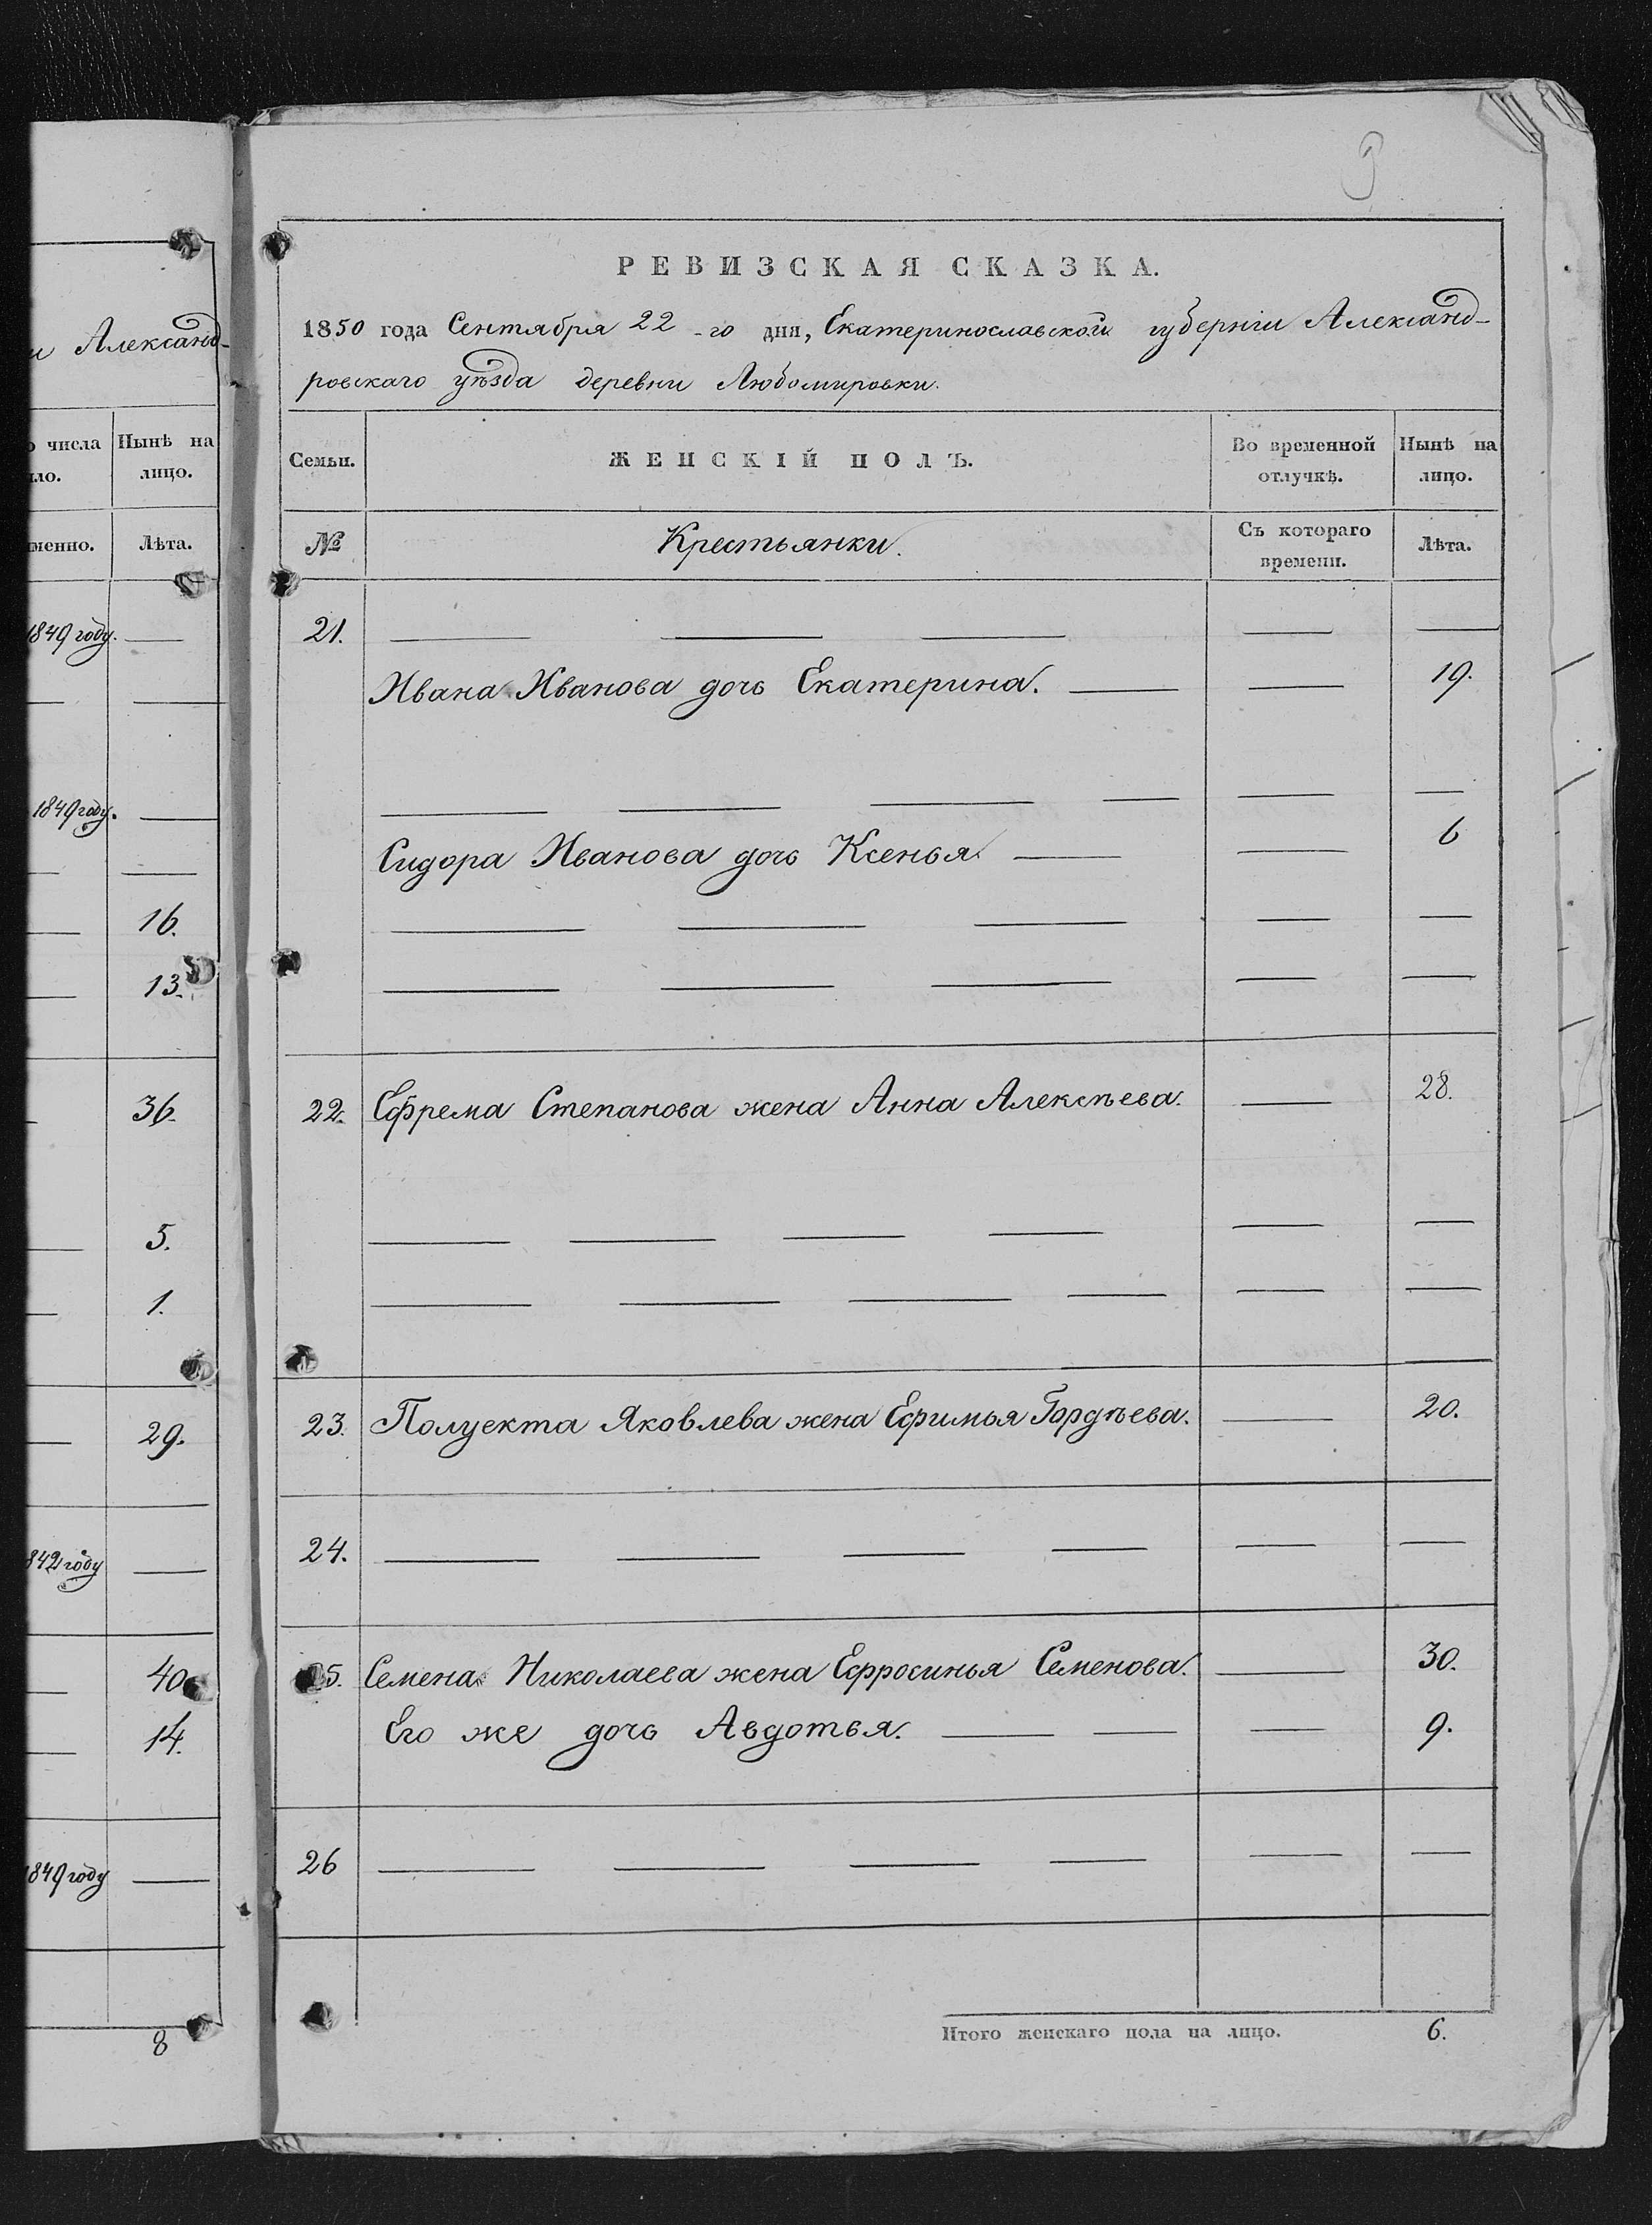 и Александ-
числа Нынѣ на
ло. лицо.
именно. Лѣта.
1849 году. —
1849 году. —
16.
13.
36.
5.
1.
29.
842 году —
40
14.
1849 году —
8
9
РЕВИЗСКАЯ СКАЗКА.
1850 года Сентября 22-го дня, Екатеринославской губерніи Александ-
ровскаго уѣзда деревни Любомировки.
Семьи. ЖЕНСКІЙ ПОЛЪ. Во временной отлучкѣ. Нынѣ на лицо.
№ Крестьянки. Съ котораго времени. Лѣта.
21. — — — — —
Ивана Иванова дочь Екатерина. — — 19.
— — — — — —
Сидора Иванова дочь Ксенья. — — 6
— — — — —
— — — — —
22. Ефрема Степанова жена Анна Алексѣева. — 28.
— — — — — —
— — — — — —
23. Полуекта Яковлева жена Ефимья Гордѣева. — 20.
24. — — — — — —
25. Семена Николаева жена Ефросинья Семенова. — 30.
Его же дочь Авдотья. — — — 9.
26 — — — — — —
Итого женскаго пола на лицо. 6.